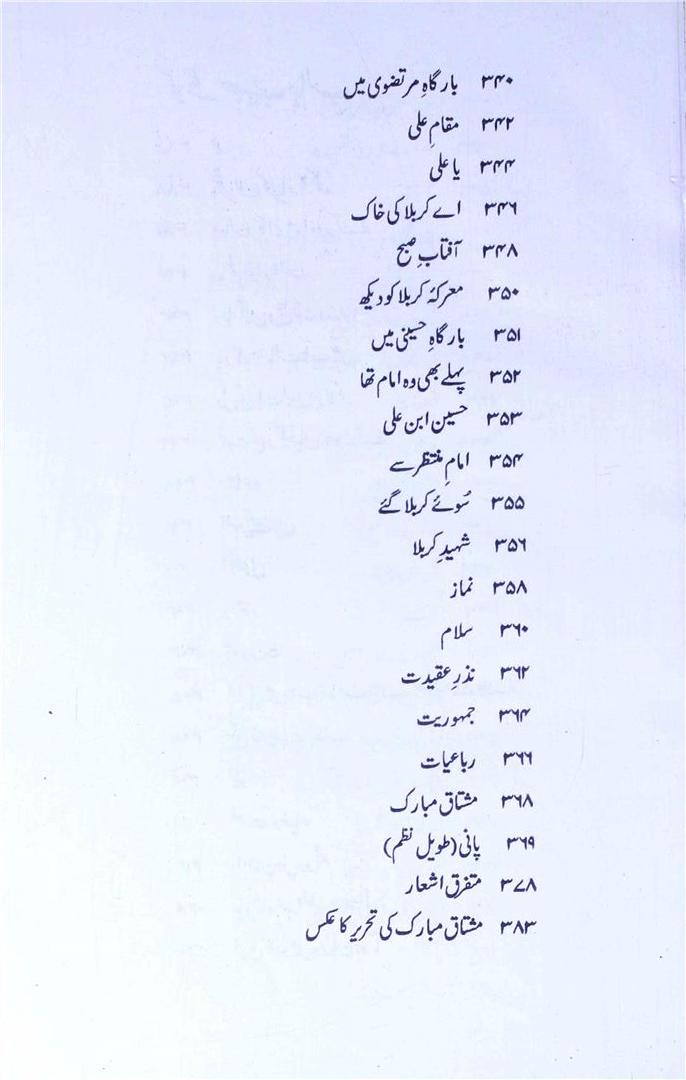 ۳۴۰ بارگاہِ مرتضوی میں
۳۴۲ مقامِ علی
۳۴۴ یا علی
۳۴۶ اے کربلا کی خاک
۳۴۸ آفتابِ صبح
۳۵۰ معرکۂ کربلا کو دیکھ
۳۵۱ بارگاہِ حسینی میں
۳۵۲ پہلے بھی وہ امام تھا
۳۵۳ حسین ابن علی
۳۵۴ امامِ منتظر سے
۳۵۵ سُوئے کربلا گئے
۳۵۶ شہیدِ کربلا
۳۵۸ نماز
۳۶۰ سلام
۳۶۲ نذرِ عقیدت
۳۶۴ جمہوریت
۳۶۶ رباعیات
۳۶۸ مشتاق مبارک
۳۶۹ پانی (طویل نظم)
۳۷۸ متفرق اشعار
۳۸۳ مشتاق مبارک کی تحریر کا عکس